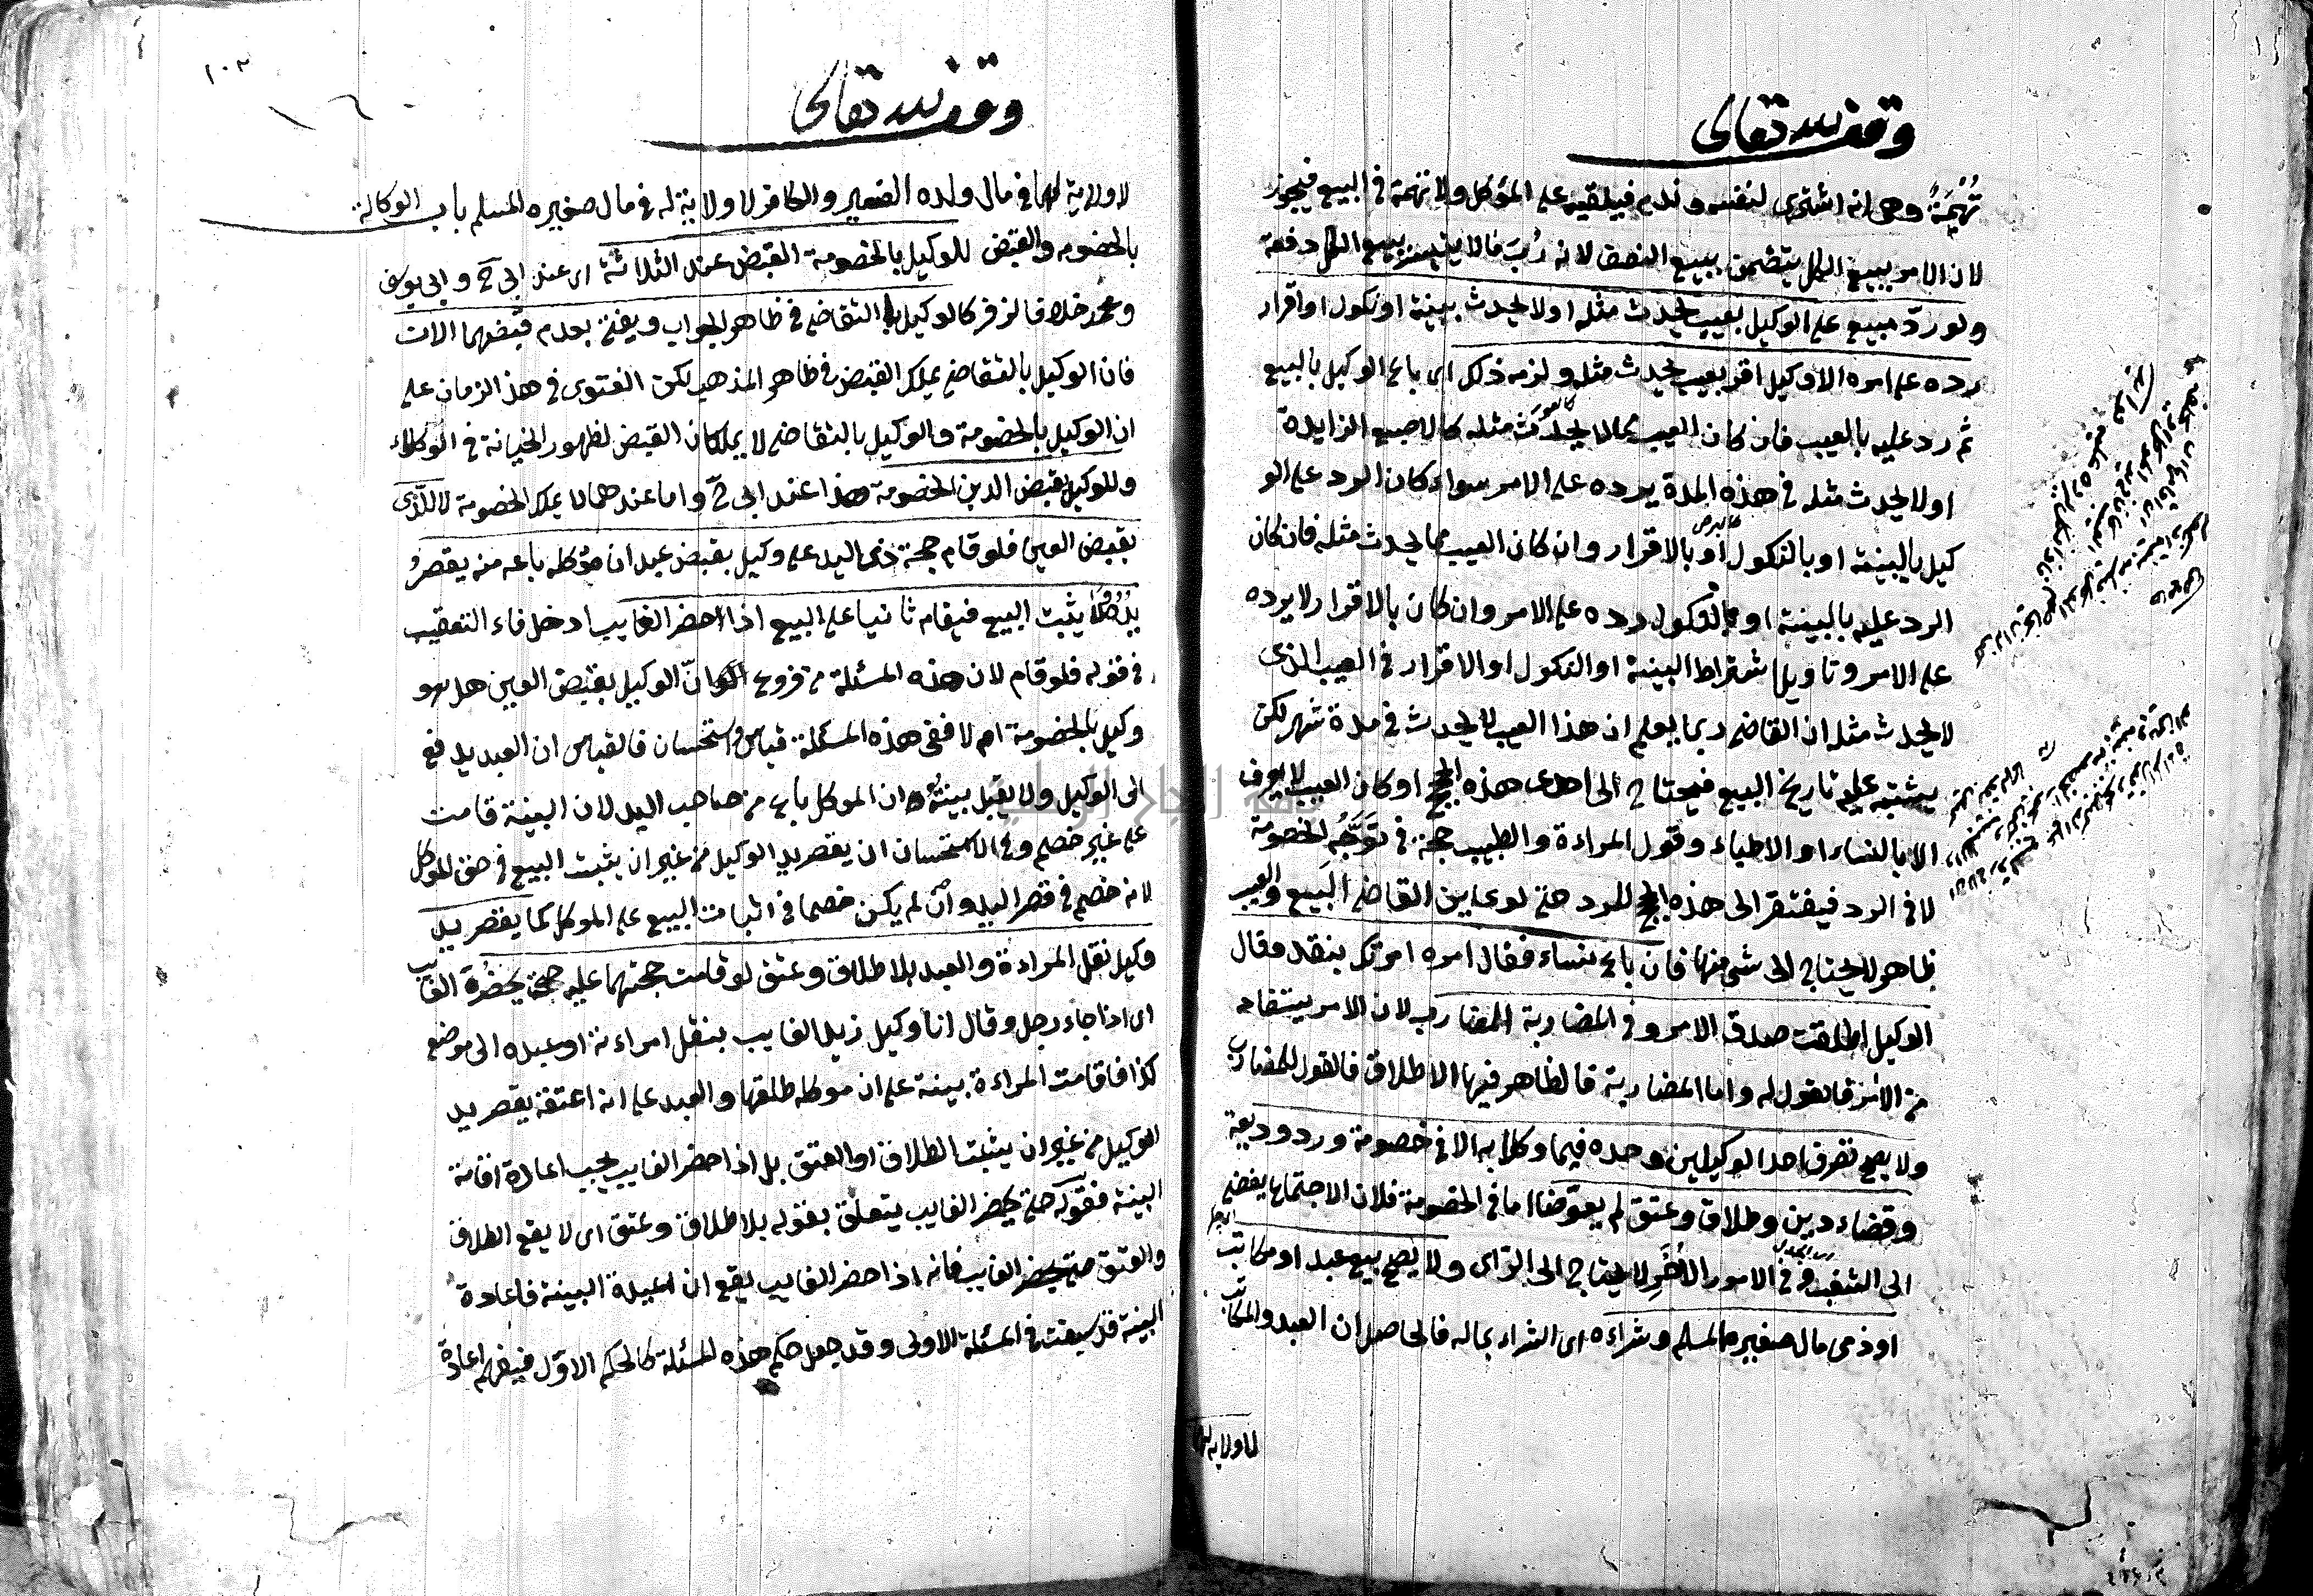 وقف لله تعالى
تُهْمَةٌ وهى انه اشترى لنفسه وندم فيلقيه على المؤكل ولا تهمة فى البيع فيجوز
لان الامر ببيع الكل يتضمن بيع النصف لانه رُبَ مالا يتيسر بيع الكل دفعة
ولو ردّ مبيع على الوكيل بعيب يحدث مثله اولا يحدث ببينة او نكول او اقرار
رده على امره الا وكيل اقر بعيب يحدث مثله ولزمه ذلك اى باع الوكيل بالبيع
ثم رد عليه بالعيب فان كان العيب مما لا يحدث مثله كالاصبع الزايدة
اولا يحدث مثله فى هذه المدة يرده على الامر سواء كان الرد على الو
كيل بالبينة او بالنكول او بالاقرار وان كان العيب مما يحدث مثله فان كان
الرد عليه بالبينة او بالنكول رده على الامر وان كان بالاقرار لا يرده
على الامر وتاويل اشتراط البينة او النكول او الاقرار فى العيب الذى
لا يحدث مثله ان القاضى ربما يعلم ان هذا العيب لا يحدث فى مدة شهر لكن
يشتبه عليه تاريخ البيع فيحتاج الى احدى هذه الحجج او كان العيب لا يعرف
الا بالنساء او الاطباء وقول المراءة والطبيب حجة فى تَوَجُّه الخصومة
لا فى الرد فيفتقر الى هذه الحجج للرد حتى لو عاين القاضى البيع والعيب
ظاهر لا يحتاج الى شئ منها فان باع نساء فقال امره امرتك بنقد وقال
الوكيل اطلقت صدق الامر وفى المضاربة المضارب لان الامر يستفاد
من الامر فالقول له واما المضاربة فالظاهر فيها الاطلاق فالقول للمضارب
ولا يصح تصرف احد الوكيلين وحده فيما وكلا به الا فى خصومة ورد وديعة
وقضاء دين وطلاق وعتق لم يعوّضا اما فى الخصومة فلان الاجتماع يفضى
الى الشغب وفى الامور الأُخَرِ لا يحتاج الى الراى ولا يصح بيع عبد او مكاتب
او ذمى مال صغيره المسلم وشراءه اى الشراء بماله فالحاصل ان العبد والمكاتب
لا ولاية لهما
وقف لله تعالى
١٠٢
لا ولاية لهما فى مال ولده الصغير والكافر لا ولاية له فى مال صغيره المسلم باب الوكالة
بالخصومه والقبض للوكيل بالخصومة القبض عند الثلاثة اى عند ابى ح وابى يوسف
ومحمد خلافا لزفر كالوكيل بالتقاضى فى ظاهر الجواب ويفتى بعدم قبضهما الان
فان الوكيل بالتقاضى يملك القبض فى ظاهر المذهب لكن الفتوى فى هذ الزمان على
ان الوكيل بالخصومة والوكيل بالتقاضى لا يملكان القبض لظهور الخيانة فى الوكلاء
وللوكيل بقبض الدين الخصومة هذا عند ابى ح واما عندهما لا يملك الخصومة لا للذى
بقبض العين فلو قام حجة ذى اليد على وكيل بقبض عبد ان مؤكله باعه منه يقصرُ
يدُه ولا يثبت البيع فيقام ثانيا على البيع اذا احضر الغايب ادخل فاء التعقيب
فى قوله فلو قام لان هذه المسئلة من فروع انّ الوكيل بقبض العين هل هو
وكيل بالخصومة ام لا ففى هذه المسئلة قياس واستحسان فالقياس ان العبد يدفع
الى الوكيل ولا يقبل بينتُه ان الموكل باع من صاحب اليد لان البينة قامت
على غير خصم وفى الاستحسان ان يقصر يد الوكيل من غير ان يثبت البيع فى حق الموكل
لانه خصم فى قصر اليد وان لم يكن خصما فى اثبات البيع على الموكل كما يقصر يد
وكيل نقل المراءة والعبد بلا طلاق وعتق لو قامت حجتهما عليه حتى يحضُرَ الغايب
اى اذا جاء رجل وقال انا وكيل زيد الغايب بنقل امراءته او عبده الى موضع
كذا فاقامت المراءة بينة على ان موكله طلقها والعبد على انه اعتقه يقصر يد
الوكيل من غير ان يثبت الطلاق او العتق بل اذا حضر الغايب يجب اعادة اقامة
البينة فقوله حتى يحضر الغايب يتعلق بقوله بلا طلاق وعتق اى لا يقع الطلاق
والعتق حتى يحضر الغايب فانه اذا حضر الغايب يقع ان اعيدة البينة فاعادة
البينة قد سبقت فى المسئلة الاولى وقد جعل حكم هذه المسئلة كالحكم الاوّل فيفهم اعادة